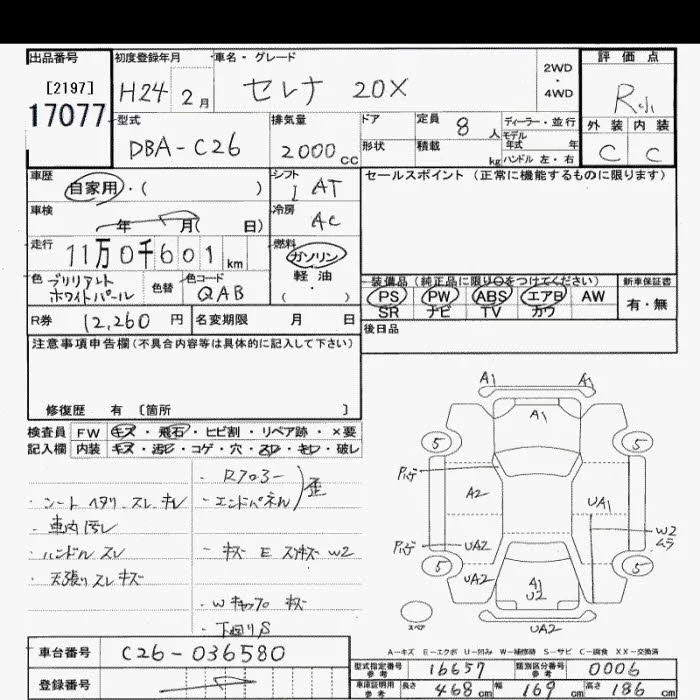 出品番号
[2197]
17077
初度登録年月
H24 2月
車名・グレード
セレナ 20X
2WD
・
4WD
評価点
R
外装 内装
C C
型式
DBA-C26
排気量
2000cc
ドア
形状
定員 8人
積載 kg
ディーラー・並行
モデル
年式 年
ハンドル 左・右
車歴
自家用・( )
シフト
AT
車検
年 月( 日)
冷房
AC
走行
11万0千601km
燃料
ガソリン
軽油
( ・ )
色
ブリリアント
ホワイトパール
色替
色コード
QAB
R券 12,260円
名変期限 月 日
セールスポイント(正常に機能するものに限ります)
装備品(純正品に限り○をつけてください)
PS PW ABS エアB AW
SR ナビ TV カワ
新車保証書
有・無
後日品
注意事項申告欄(不具合内容等は具体的に記入して下さい)
修復歴 有 〔箇所 〕
検査員
記入欄
FW キズ・飛石・ヒビ割・リペア跡・×要
内装 キズ・汚レ・コゲ・穴・スレ・キレ・破レ
・シート ヘタリ スレ キレ
・車内汚レ
・ハンドル スレ
・天張り スレ キズ
・エンドパネル
歪
・W キャップ キズ
・下回りS
A1
A1
A1
5
5
A2
UA1
W2
ムラ
UA2
5
5
UA2
A1
U2
UA2
スペア
A-キズ E-エクボ U-凹み W-補修跡 S-サビ C-腐食 XX-交換済
車台番号 C26-036580
登録番号
型式指定番号
参考
16657
類別区分番号
参考
0006
車庫証明用
参考
長さ 468cm
幅 169cm
高さ 186cm